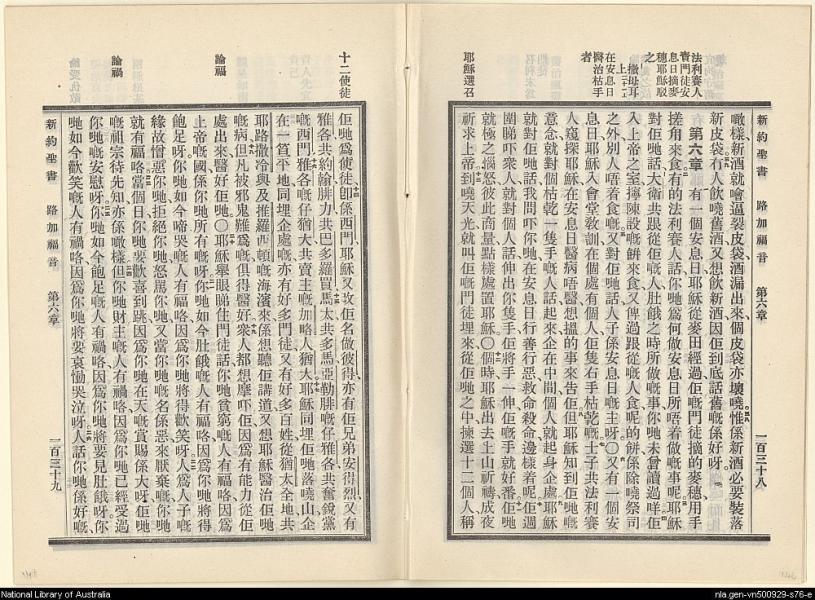 新約聖書　路加福音　第六章　一百三十八
噉樣新酒就會逼裂皮袋酒漏出來個皮袋亦壞嘵惟係新酒必要裝落
新皮袋冇人飲嘵舊酒又想飲新酒因佢到底話舊嘅係好呀
第六章　有一個安息日耶穌從麥田經過佢嘅門徒摘的麥穗用手
搓角來食有的法利賽人話你哋爲何做安息日所唔着做嘅事呢耶穌
對佢哋話大衛共跟從佢嘅人肚餓之時所做嘅事你哋未曾讀過咩佢
入上帝之室擰陳設嘅餅來食又俾過跟從嘅人食呢的餅係除嘵祭司
之外別人唔着食嘅又對佢哋話人子係安息日嘅主呀〇又有一個安
息日耶穌入會堂敎訓在個處有個人佢隻右手枯乾嘅士子共法利賽
人窺探耶穌在安息日醫病唔醫想搵的事來吿佢但耶穌知到佢哋嘅
意念就對個枯乾一隻手嘅人話起來企在中間個人就起身企處耶穌
就對佢哋話我問吓你哋在安息日行善行惡救命殺命邊樣着呢佢週
圍睇吓衆人就對個人話伸出你隻手佢將手一伸佢嘅手就好番佢哋
就極之惱怒彼此商量點樣處置耶穌〇個時耶穌出去上山祈禱成夜
祈求上帝到嘵天光就叫佢嘅門徒埋來從佢哋之中揀選十二個人稱
法利賽人
責門徒安
息日摘麥
穗耶穌駁
之
在安息日
醫治枯手
者
耶穌選召
十二使徒
佢哋爲使徒卽係西門耶穌又改佢名做彼得亦有佢兄弟安得烈又有
雅各共約翰腓力共巴多羅買馬太共多馬亞勒腓嘅仔雅各共奮銳黨
嘅西門雅各嘅仔猶大共賣主嘅加略人猶大耶穌同埋佢哋落嘵山企
在一笪平地同埋企處嘅亦有好多門徒又有好多百姓從猶太全地共
耶路撒冷與及推羅西頓嘅海濱來係想聽佢講道又想耶穌醫治佢哋
嘅病但凡被邪鬼難爲嘅俱得醫好衆人都想摩吓佢因爲有能力從佢
處出來醫好佢哋〇耶穌舉眼睇住門徒話你哋貧窮嘅人有福咯因爲
上帝嘅國係你哋所有嘅呀你哋如今肚餓嘅人有福咯因爲你哋將得
飽足呀你哋如今啼哭嘅人有福咯因爲你哋將得歡笑呀人爲人子嘅
緣故憎惡你哋拒絕你哋怒駡你哋又當你哋嘅名係惡來厭棄嘅你哋
就有福咯當個日你哋要歡喜到跳因爲你哋在天嘅賞賜係大呀佢哋
嘅祖宗待先知亦係噉樣但你哋財主嘅人有禍咯因爲你哋已經受過
你哋嘅安慰呀你哋如今飽足嘅人有禍咯因爲你哋將要見肚餓呀你
哋如今歡笑嘅人有禍咯因爲你哋將要哀慟哭泣呀人話你哋係好嘅
論福
論禍
新約聖書　路加福音　第六章　一百三十九
National Library of Australia
nla.gen-vn500929-s76-e